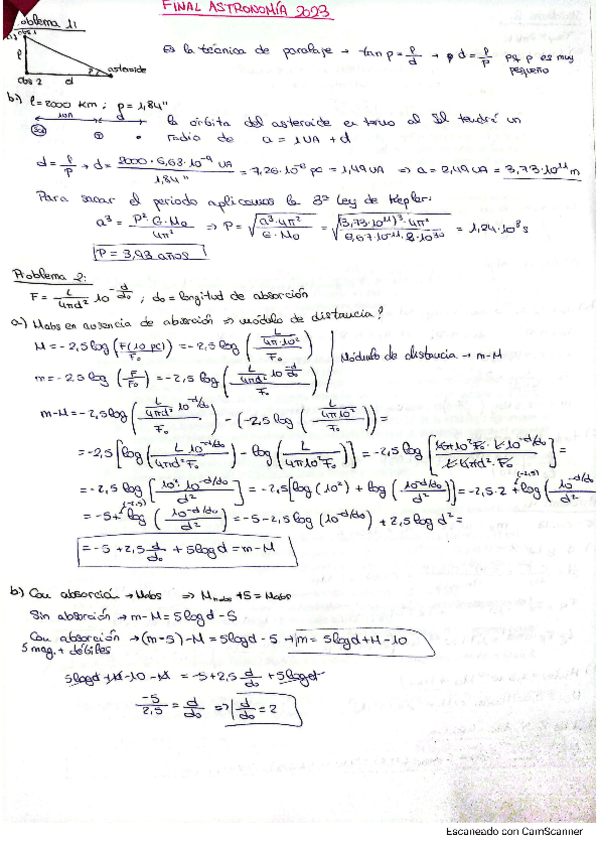 FINAL ASTRONOMÍA 2023
Problema 1:
a) obs 1
Es la técnica de paralaje → tan p = ℓ/d → d = ℓ/p pq p es muy pequeño
ℓ
p
asteroide
obs 2 d
b) ℓ = 2000 km ; p = 1,84"
1UA d
la órbita del asteroide en torno al Sol tendrá un
radio de a = 1UA + d
d = ℓ/p → d = 2000 · 6,68·10⁻⁹ UA / 1,84" = 7,26·10⁻⁶ pc = 1,49 UA ⇒ a = 2,49 UA = 3,73·10¹¹ m
Para sacar el periodo aplicamos la 3ª Ley de Kepler:
a³ = P²·G·M₀ / 4π² ⇒ P = √(a³·4π² / G·M₀) = √((3,73·10¹¹)³·4π² / 6,67·10⁻¹¹·2·10³⁰) = 1,24·10⁸ s
P = 3,93 años
Problema 2:
F = L/4πd² 10^(-d/d₀) ; d₀ = longitud de absorción
a) Mabs en ausencia de absorción ⇒ módulo de distancia?
M = -2,5log(F(10 pc)/F₀) = -2,5log((L/4π·10²)/F₀)
Módulo de distancia → m-M
m = -2,5log(F/F₀) = -2,5log((L/4πd² 10^(-d/d₀))/F₀)
m-M = -2,5log((L/4πd² 10^(-d/d₀))/F₀) - (-2,5log((L/4π10²)/F₀)) =
= -2,5[log(L 10^(-d/d₀)/4πd²F₀) - log(L/4π10²F₀)] = -2,5log[4π10²F₀·L·10^(-d/d₀) / L·4πd²·F₀] =
= -2,5log[10²·10^(-d/d₀)/d²] = -2,5[log(10²) + log(10^(-d/d₀)/d²)] = -2,5·2 + (-2,5) log(10^(-d/d₀)/d²)
= -5 + (-2,5) log(10^(-d/d₀)/d²) = -5 - 2,5log(10^(-d/d₀)) + 2,5log d² =
= -5 + 2,5 d/d₀ + 5log d = m-M
b) Con absorción → Mabs ⇒ + 5 = Mabs
Sin absorción → m-M = 5log d - 5
Con absorción → (m-5) - M = 5log d - 5 → m = 5log d + M - 10
5 mag. + débiles
5log d + M - 10 - M = -5 + 2,5 d/d₀ + 5log d
-5/2,5 = d/d₀ ⇒ d/d₀ = 2
Escaneado con CamScanner